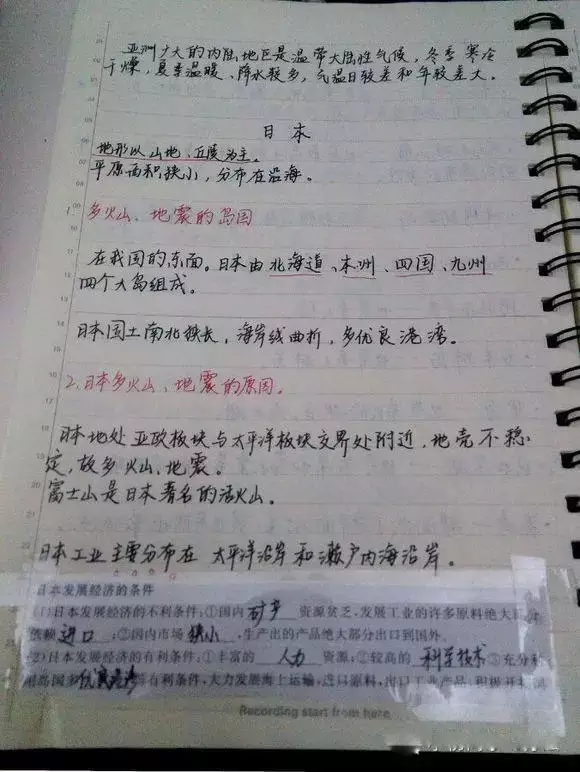 亚洲广大的内陆地区是温带大陆性气候，冬季寒冷
干燥，夏季温暖、降水较多，气温日较差和年较差大。
日本
地形以山地、丘陵为主。
平原面积狭小，分布在沿海。
1、多火山、地震的岛国
在我国的东面。日本由北海道、本州、四国、九州
四个大岛组成。
日本国土南北狭长，海岸线曲折，多优良港湾。
2.日本多火山、地震的原因。
日本地处亚欧板块与太平洋板块交界处附近，地壳不稳
定，故多火山、地震。
富士山是日本著名的活火山。
日本工业主要分布在太平洋沿岸和濑户内海沿岸。
日本发展经济的条件
(1)日本发展经济的不利条件:①国内 矿产 资源贫乏,发展工业的许多原料绝大部分
依赖 进口 ;②国内市场 狭小 ,生产出的产品绝大部分出口到国外。
(2)日本发展经济的有利条件:①丰富的 人力 资源;②较高的 科学技术 ③充分利
用岛国多 优良港湾 的有利条件,大力发展海上运输,进口原料,出口工业产品,积极开拓
Recording start from here